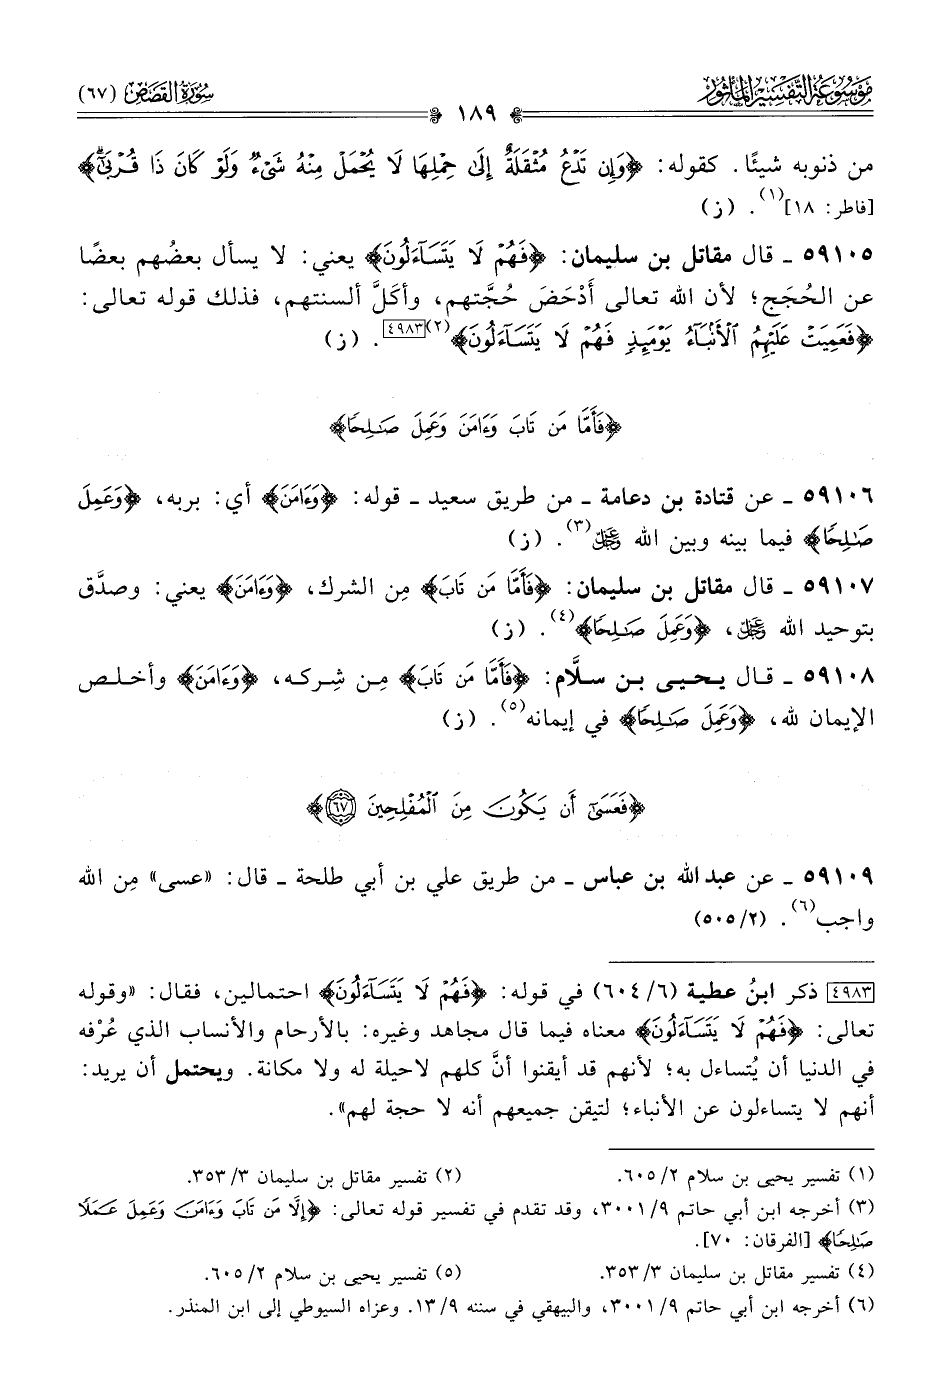 مَوْسُوعَة التَّفْسِير المَأثُور
سُورَةُ القَصَص (٦٧)
١٨٩
من ذنوبه شيئًا. كقوله: ﴿وَإِن تَدْعُ مُثْقَلَةٌ إِلَىٰ حِمْلِهَا لَا يُحْمَلْ مِنْهُ شَيْءٌ وَلَوْ كَانَ ذَا قُرْبَىٰٓ﴾
[فاطر: ١٨](١). (ز)
٥٩١٠٥ ـ قال مقاتل بن سليمان: ﴿فَهُمْ لَا يَتَسَآءَلُونَ﴾ يعني: لا يسأل بعضُهم بعضًا
عن الحُجَج؛ لأن الله تعالى أَدْحَضَ حُجَّتهم، وأكَلَّ ألسنتهم، فذلك قوله تعالى:
﴿فَعَمِيَتْ عَلَيْهِمُ ٱلْأَنۢبَآءُ يَوْمَئِذٍ فَهُمْ لَا يَتَسَآءَلُونَ﴾(٢)[٤٩٨٣]. (ز)
﴿فَأَمَّا مَن تَابَ وَءَامَنَ وَعَمِلَ صَـٰلِحًا﴾
٥٩١٠٦ ـ عن قتادة بن دعامة ـ من طريق سعيد ـ قوله: ﴿وَءَامَنَ﴾ أي: بربه، ﴿وَعَمِلَ
صَـٰلِحًا﴾ فيما بينه وبين الله ﷿(٣). (ز)
٥٩١٠٧ ـ قال مقاتل بن سليمان: ﴿فَأَمَّا مَن تَابَ﴾ مِن الشرك، ﴿وَءَامَنَ﴾ يعني: وصدَّق
بتوحيد الله ﷿، ﴿وَعَمِلَ صَـٰلِحًا﴾(٤). (ز)
٥٩١٠٨ ـ قال يحيى بن سلَّام: ﴿فَأَمَّا مَن تَابَ﴾ مِن شِركه، ﴿وَءَامَنَ﴾ وأخلص
الإيمان لله، ﴿وَعَمِلَ صَـٰلِحًا﴾ في إيمانه(٥). (ز)
﴿فَعَسَىٰٓ أَن يَكُونَ مِنَ ٱلْمُفْلِحِينَ ٦٧﴾
٥٩١٠٩ ـ عن عبد الله بن عباس ـ من طريق علي بن أبي طلحة ـ قال: «عسى» مِن الله
واجب(٦). (٥٠٥/٢)
[٤٩٨٣] ذكر ابنُ عطية (٦٠٤/٦) في قوله: ﴿فَهُمْ لَا يَتَسَآءَلُونَ﴾ احتمالين، فقال: «وقوله
تعالى: ﴿فَهُمْ لَا يَتَسَآءَلُونَ﴾ معناه فيما قال مجاهد وغيره: بالأرحام والأنساب الذي عُرْفه
في الدنيا أن يُتساءل به؛ لأنهم قد أيقنوا أنَّ كلهم لاحيلة له ولا مكانة. ويحتمل أن يريد:
أنهم لا يتساءلون عن الأنباء؛ لتيقن جميعهم أنه لا حجة لهم».
(١) تفسير يحيى بن سلام ٦٠٥/٢. (٢) تفسير مقاتل بن سليمان ٣٥٣/٣.
(٣) أخرجه ابن أبي حاتم ٣٠٠١/٩، وقد تقدم في تفسير قوله تعالى: ﴿إِلَّا مَن تَابَ وَءَامَنَ وَعَمِلَ عَمَلًا
صَـٰلِحًا﴾ [الفرقان: ٧٠].
(٤) تفسير مقاتل بن سليمان ٣٥٣/٣. (٥) تفسير يحيى بن سلام ٦٠٥/٢.
(٦) أخرجه ابن أبي حاتم ٣٠٠١/٩، والبيهقي في سننه ١٣/٩. وعزاه السيوطي إلى ابن المنذر.